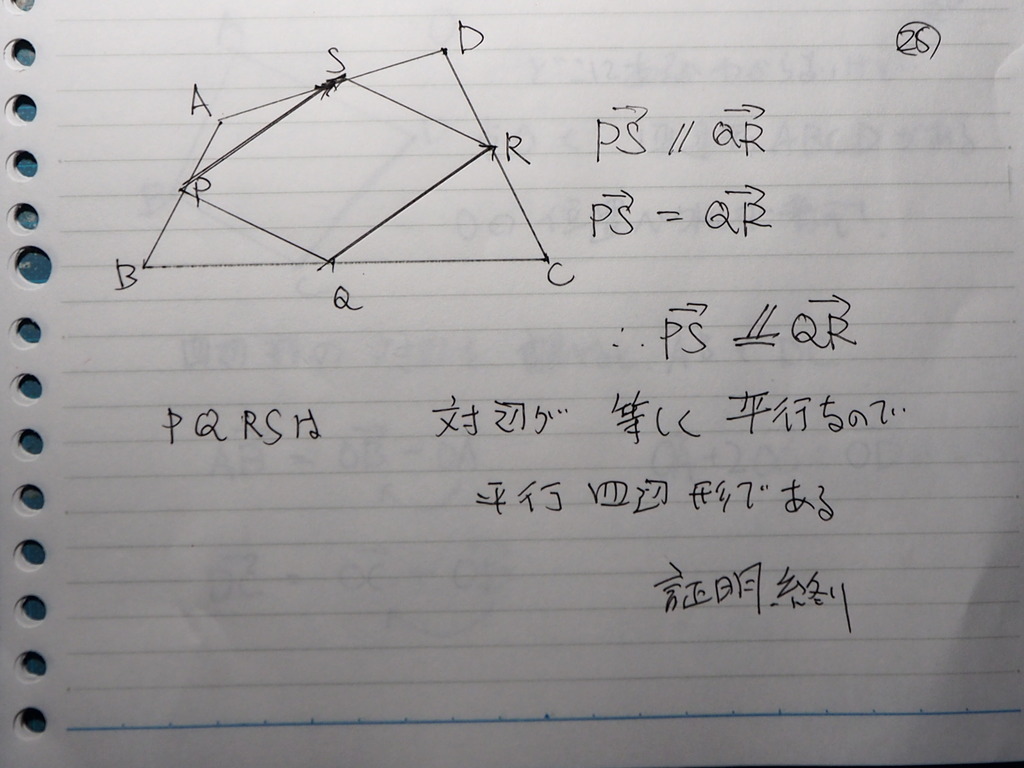 26
D
S
A
R
P
B
Q
C
PS // QR
PS = QR
∴ PS ⫽ QR
PQRSは 対辺が 等しく 平行なので
平行四辺形である
証明終り